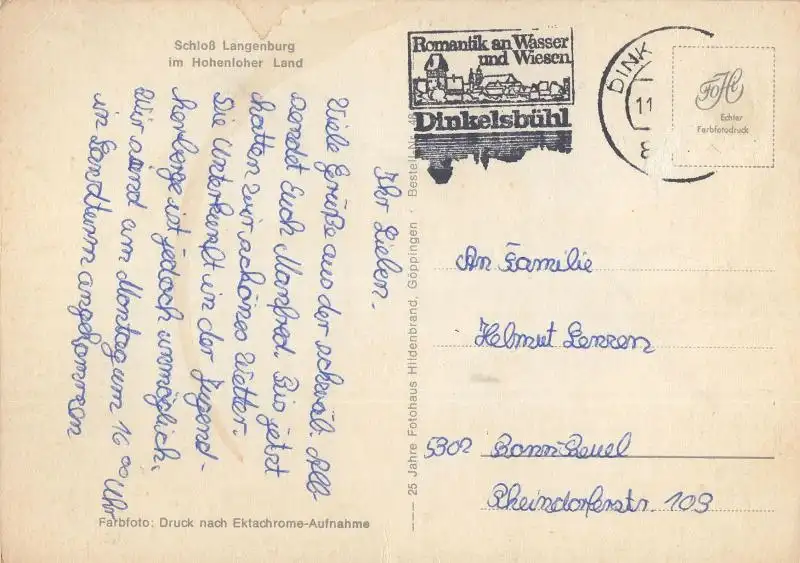 Schloß Langenburg
im Hohenloher Land
Ihr Lieben.
Viele Grüße aus der schwäb. Alb
sendet Euch Manfred. Bis jetzt
hatten wir schönes Wetter.
Die Unterkunft in der Jugend-
herberge ist jedoch unmöglich.
Wir sind am Montag um 16 00 Uhr
in Landturm angekommen
Farbfoto: Druck nach Ektachrome-Aufnahme
25 Jahre Fotohaus Hildenbrand, Göppingen · Bestell Nr.
Romantik an Wasser
und Wiesen
Dinkelsbühl
DINK
11.
8
FoHi
Echter
Farbfotodruck
An Familie
Helmut Lenzen
5302 Bonn-Beuel
Rheindorferstr. 109